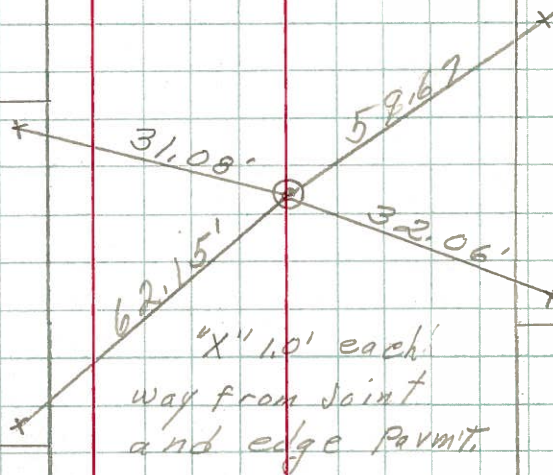 59.67
31.08'
32.06'
62.15'
"X" 1.0' each
way from Joint
and edge Pavmt.